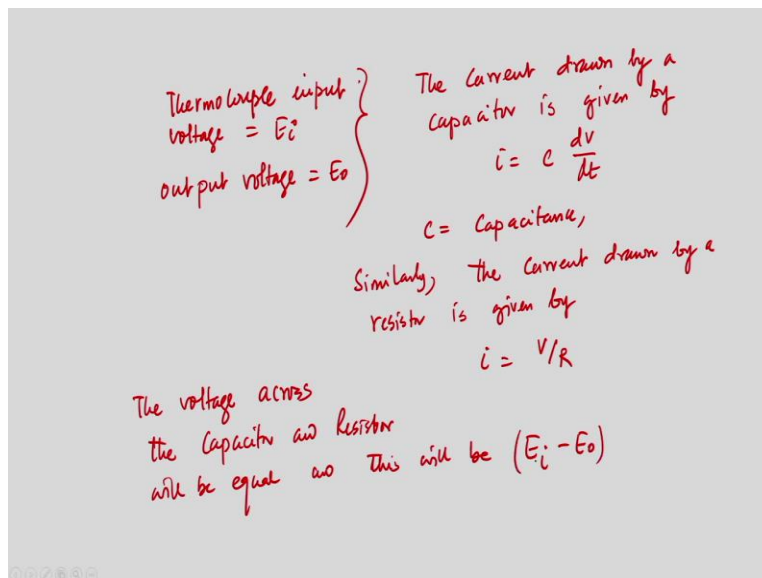 Thermocouple input
voltage = Ei
output voltage = Eo
The current drawn by a
capacitor is given by
i = C dv/dt
C = Capacitance,
Similarly, the current drawn by a
resistor is given by
i = V/R
The voltage across
the Capacitor and Resistor
will be equal and this will be (Ei - Eo)